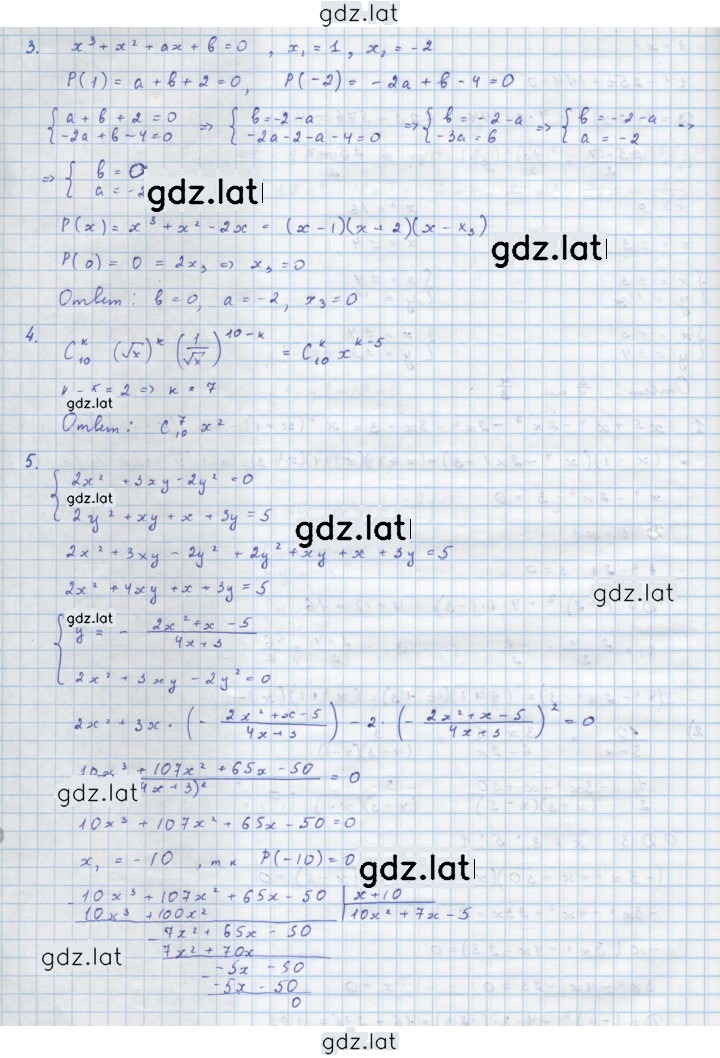 gdz.lat
3. x³ + x² + ax + b = 0 , x₁ = 1 , x₂ = -2
P(1) = a + b + 2 = 0, P(-2) = -2a + b - 4 = 0
{ a + b + 2 = 0 ⇒ { b = -2 - a ⇒ { b = -2 - a ⇒ { b = -2 - a ⇒
{ -2a + b - 4 = 0 { -2a - 2 - a - 4 = 0 { -3a = 6 { a = -2
⇒ { b = 0
{ a = -2
gdz.lat
P(x) = x³ + x² - 2x = (x - 1)(x + 2)(x - x₃)
gdz.lat
P(0) = 0 = 2x₃ ⇒ x₃ = 0
Ответ: b = 0, a = -2, x₃ = 0
4. C₁₀ᵏ (√x)ᵏ (1/√x)¹⁰⁻ᵏ = C₁₀ᵏ xᵏ⁻⁵
k - 5 = 2 ⇒ k = 7
gdz.lat
Ответ: C₁₀⁷ x²
5. { 2x² + 3xy - 2y² = 0
gdz.lat
{ 2y² + xy + x + 3y = 5
gdz.lat
2x² + 3xy - 2y² + 2y² + xy + x + 3y = 5
2x² + 4xy + x + 3y = 5
gdz.lat
gdz.lat
{ y = - (2x² + x - 5)/(4x + 3)
{ 2x² + 3xy - 2y² = 0
2x² + 3x · (- (2x² + x - 5)/(4x + 3)) - 2 · (- (2x² + x - 5)/(4x + 3))² = 0
(10x³ + 107x² + 65x - 50)/(4x + 3)² = 0
gdz.lat
10x³ + 107x² + 65x - 50 = 0
x₁ = -10 , т к P(-10) = 0
gdz.lat
- 10x³ + 107x² + 65x - 50 | x + 10
10x³ + 100x² | 10x² + 7x - 5
- 7x² + 65x - 50
7x² + 70x
gdz.lat
- -5x - 50
-5x - 50
0
gdz.lat